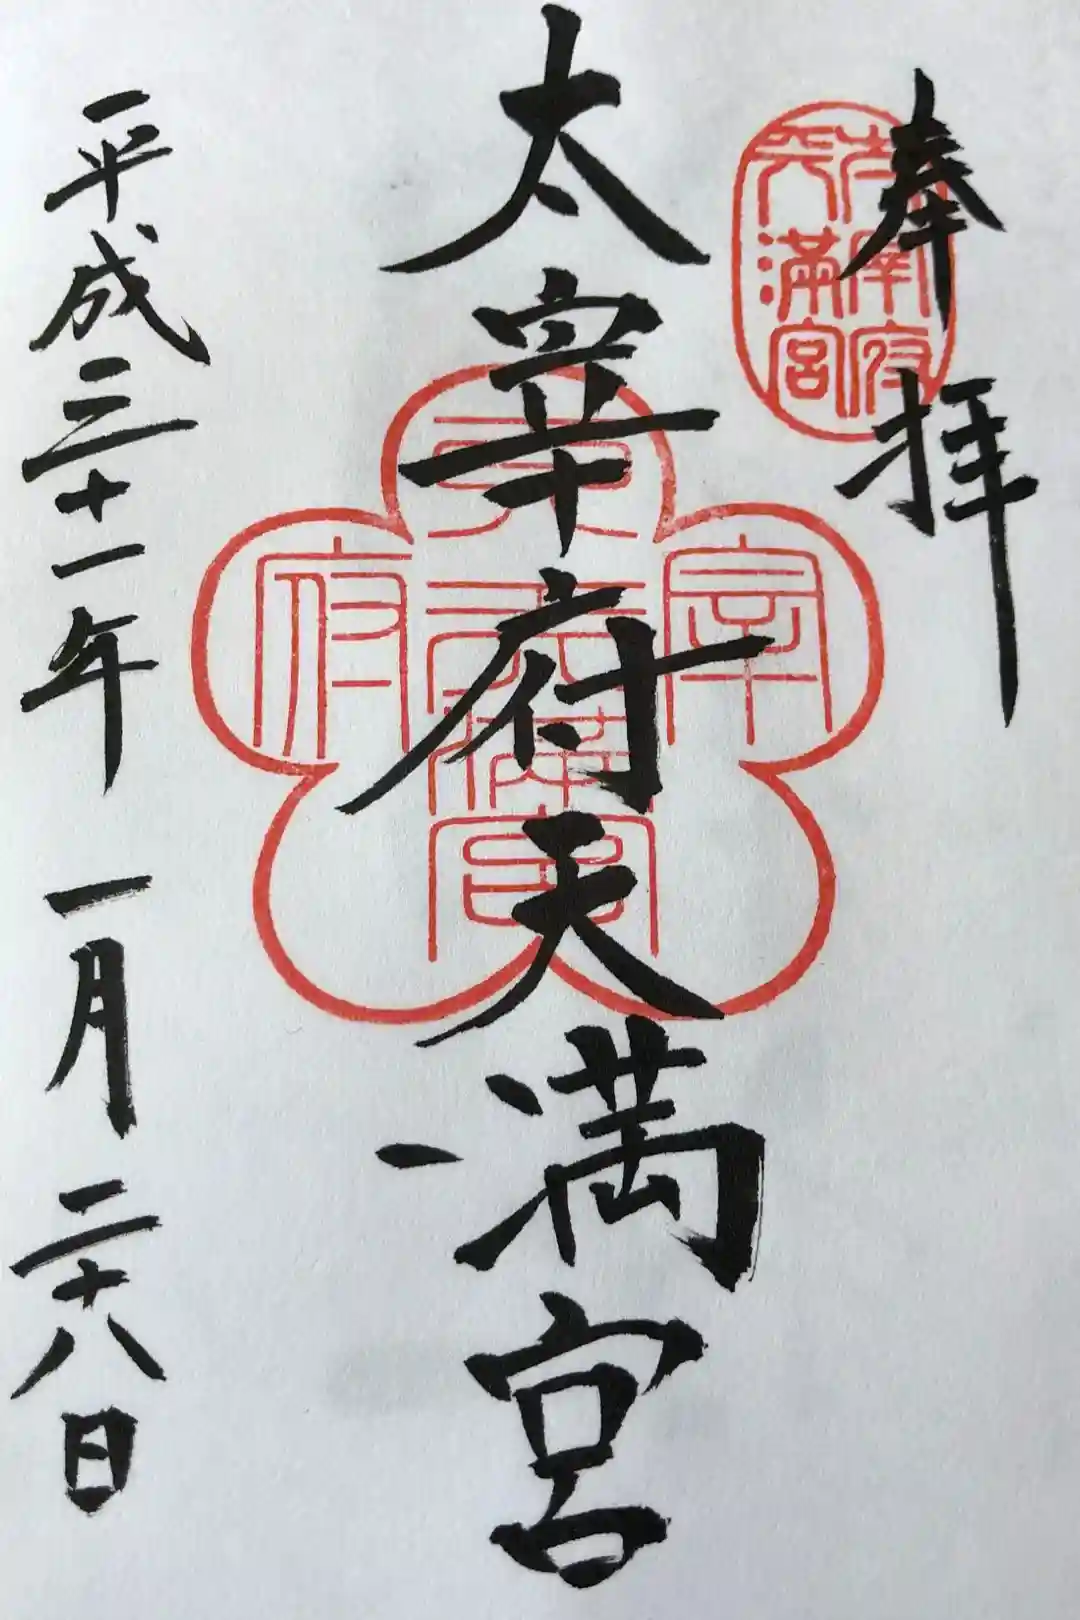 奉拝
太宰府
天満宮
太宰府天満宮
太宰府天満宮
平成三十一年一月二十八日